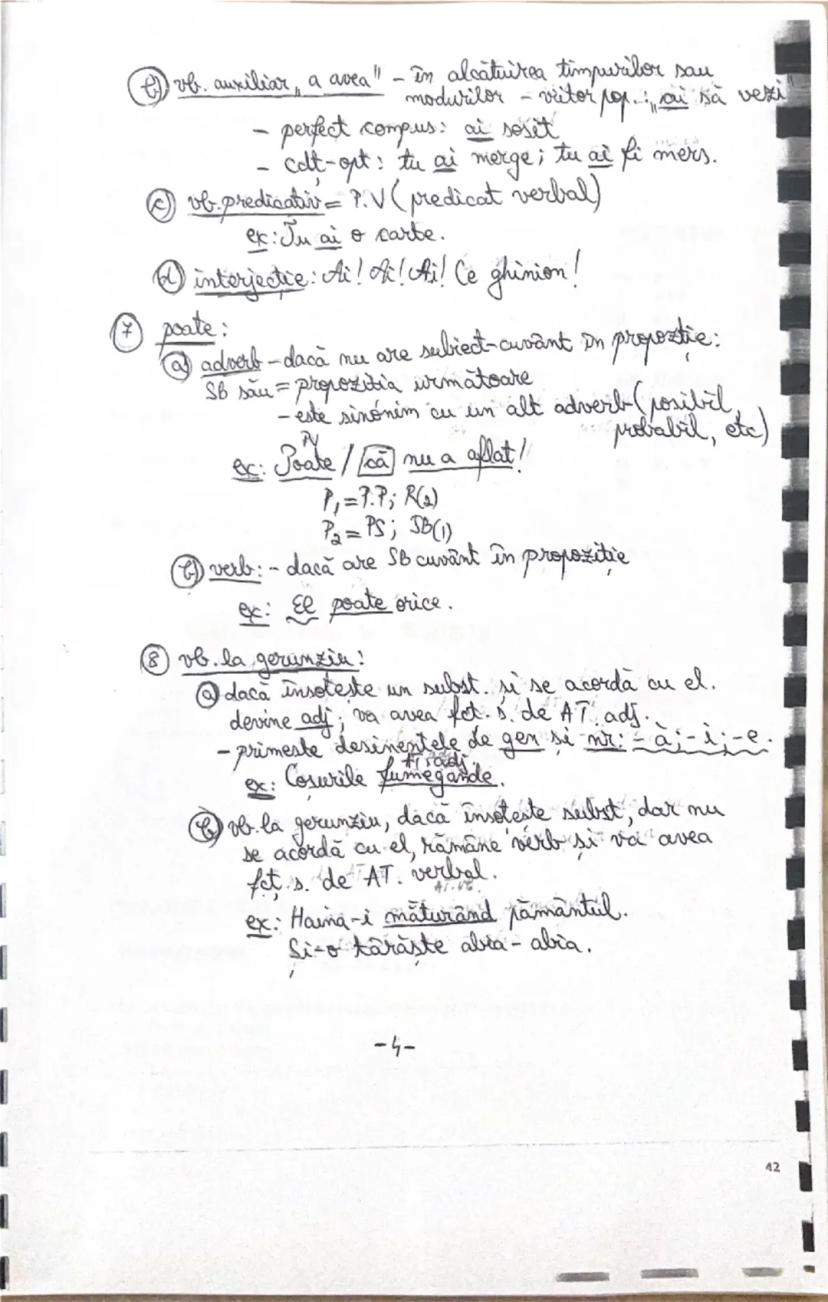 b) vb. auxiliar „a avea" – în alcătuirea timpurilor sau
modurilor – viitor pop.: „ai să vezi"
- perfect compus: ai sosit
- cdț-opt: tu ai merge; tu ai fi mers.
c) vb. predicativ = P.V (predicat verbal)
ex: Tu ai o carte.
d) interjecție: Ai! Ai! Ai! Ce ghinion!
7 poate:
a) adverb – dacă nu are subiect-cuvânt în propoziție:
SB său = propoziția următoare
- este sinonim cu un alt adverb (posibil,
probabil, etc)
PV
ex: Poate / că nu a aflat!
P1 = P.P; R(2)
P2 = PS; SB(1)
b) verb: - dacă are SB cuvânt în propoziție
ex: El poate orice.
8 vb. la gerunziu:
a dacă însoțește un subst. și se acordă cu el.
devine adj; va avea fct. s. de AT. adj.
- primește desinențele de gen și nr: -ă; -i; -e.
AT. adj.
ex: Coșurile fumegânde.
b) vb. la gerunziu, dacă însoțește subst, dar nu
se acordă cu el, rămâne verb și va avea
fct. s. de AT. verbal.
AT. vb.
ex: Haina-i măturând pământul.
Și-o târăște abia – abia.
-4-
12